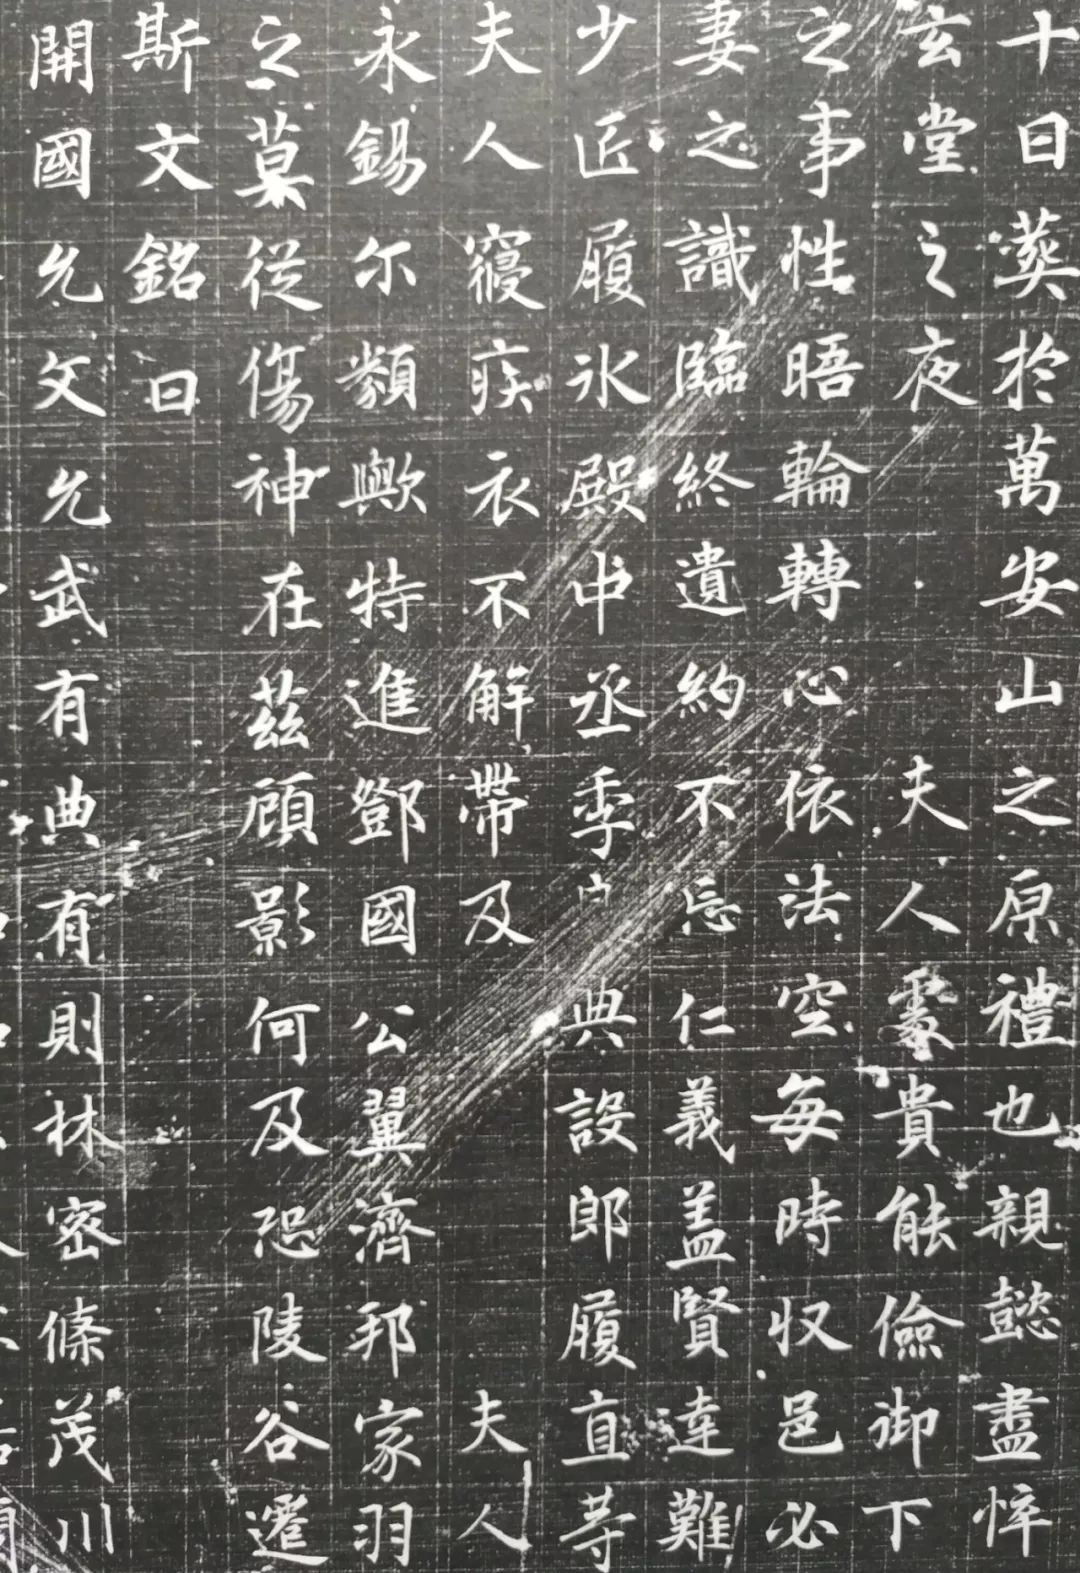 十日葬於萬安山之原禮也親懿盡悴
玄堂之夜夫人處貴能儉御下
之事性晤輪轉心依法空每時收邑必
妻之識臨終遺約不忘仁義盖賢達難
少匠履氷殿中丞季户典設郎履直等
夫人寢疾衣不解帶及夫人
永錫尔類歟特進鄧國公翼濟邦家羽
之莫從傷神在茲顧影何及恐陵谷遷
斯文銘曰
開國允文允武有典有則林密條茂川